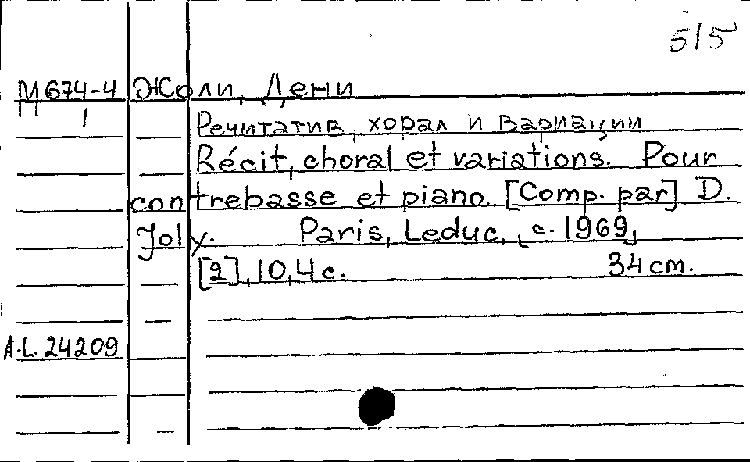 515
М674-4 Жоли, Дени
П 1
Речитатив, хорал и вариации
Récit, choral et variations. Pour
contrebasse et piano. [Comp. par] D.
Joly. Paris, Leduc, c. 1969,
[2], 10, 4 c. 34 cm.
A.L. 24209